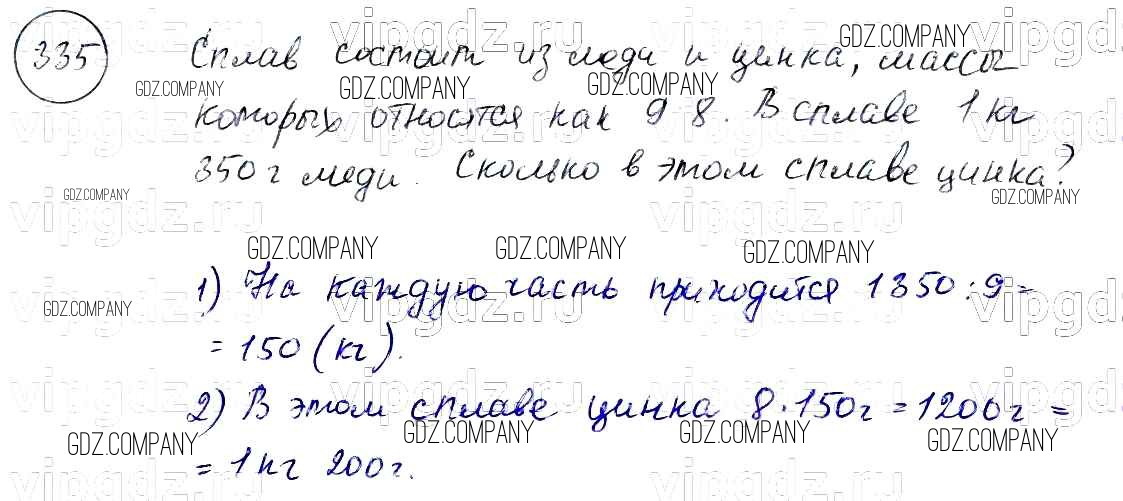 335 Сплав состоит из меди и цинка, массы
которых относятся как 9 8. В сплаве 1 кг
350 г меди. Сколько в этом сплаве цинка?
1) На каждую часть приходится 1350 : 9 =
= 150 (кг).
2) В этом сплаве цинка 8 · 150 г = 1200 г =
= 1 кг 200 г.